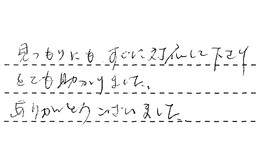 見つもりにも すぐに対応して下さり
とても助かりました。
ありがとうございました。